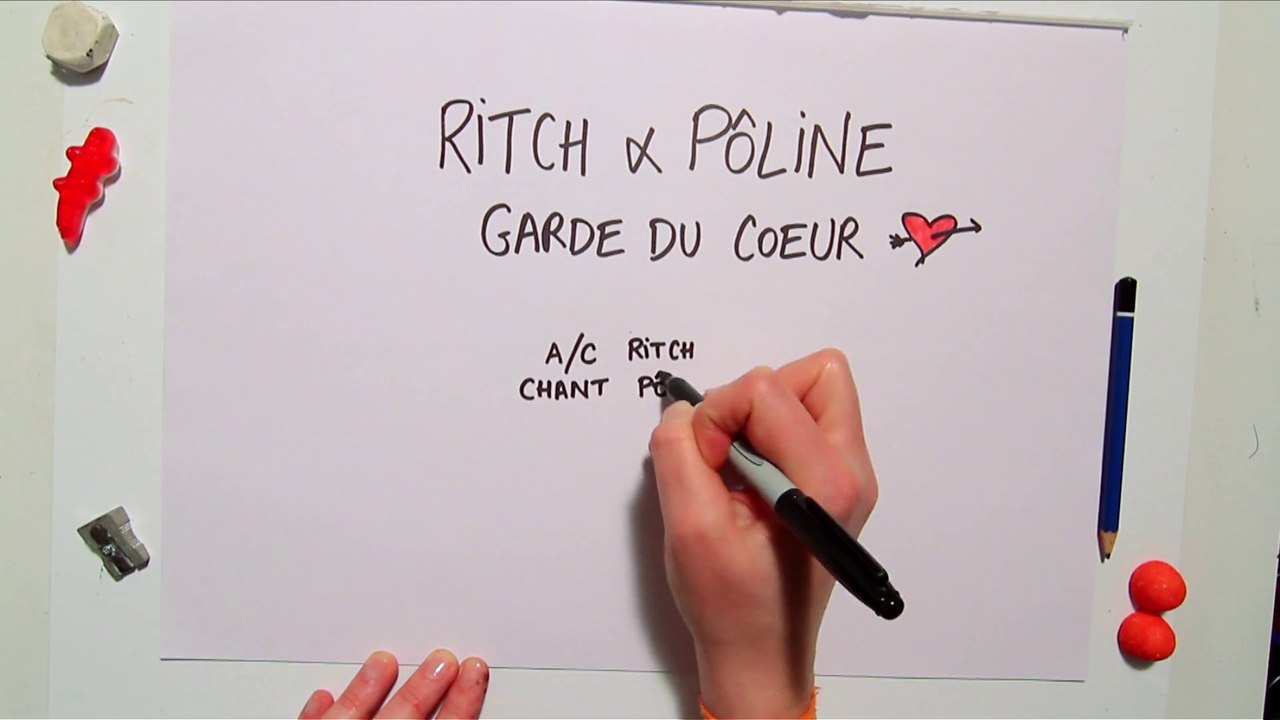 RiTCH & PÔLiNE
GARDE DU COEUR
A/C RiTCH
CHANT PÔ